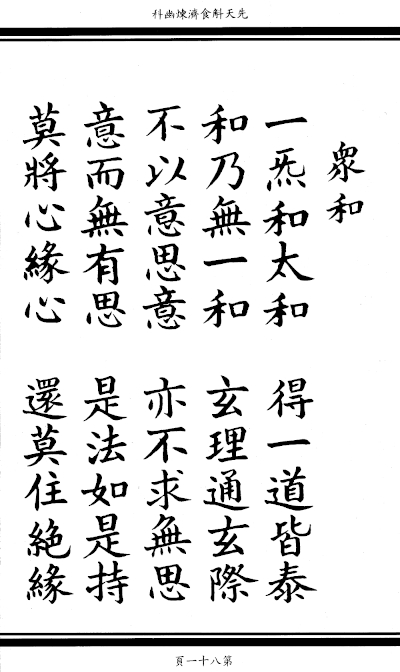 先天斛食濟煉幽科
衆和
一炁和太和 得一道皆泰
和乃無一和 玄理通玄際
不以意思意 亦不求無思
意而無有思 是法如是持
莫將心緣心 還莫住絕緣
第八十一頁